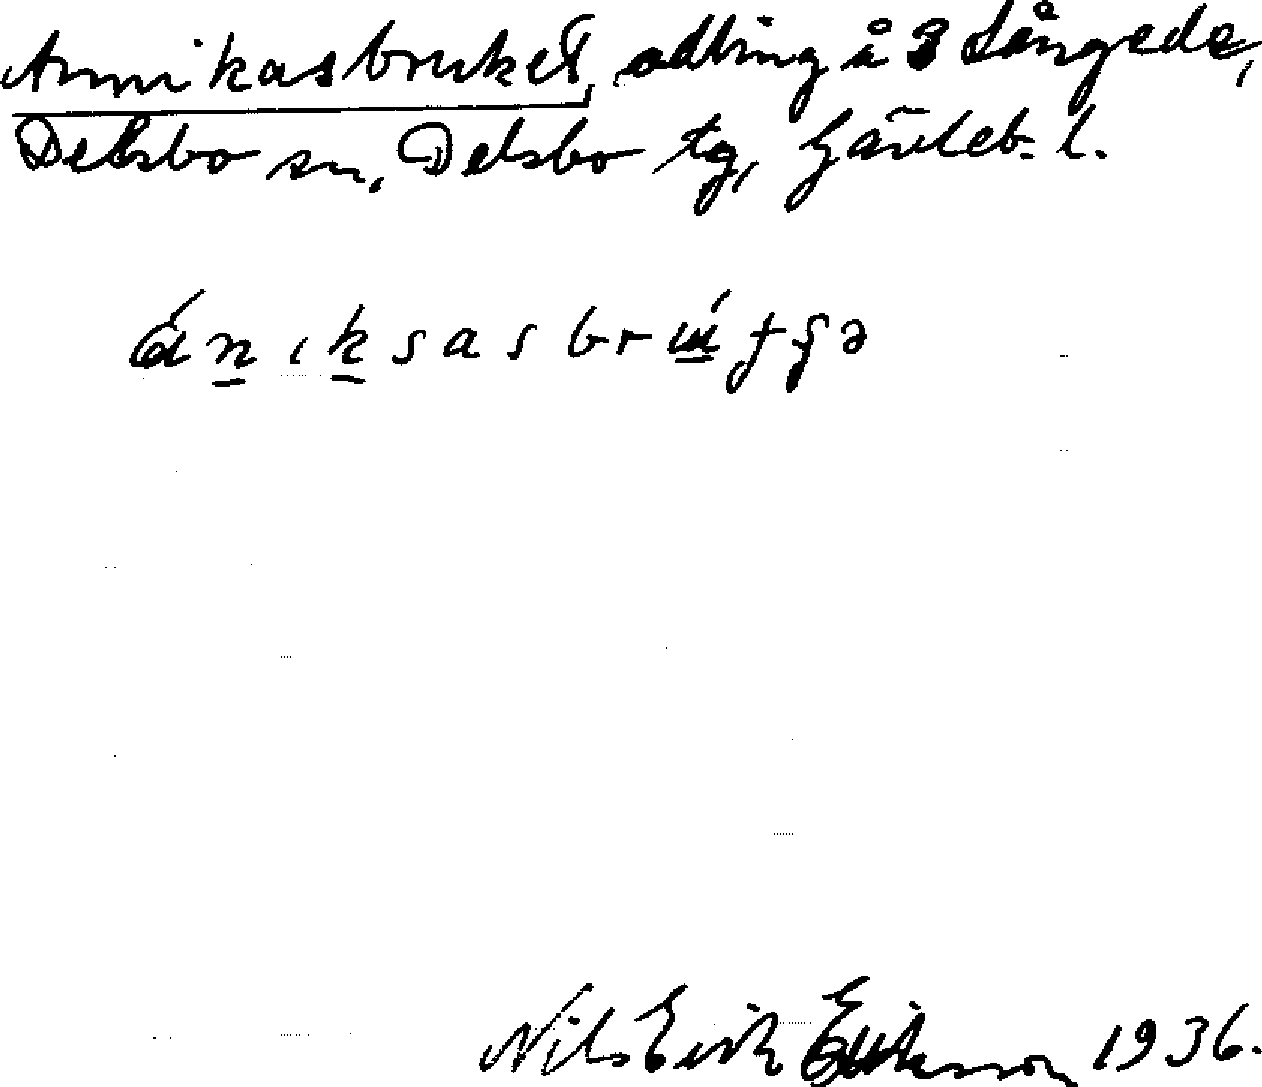 Annikasbruket, odling å 3 Långede,
Delsbo sn, Delsbo tg, Gävleb. l.
Nils Erik Eriksson 1936.